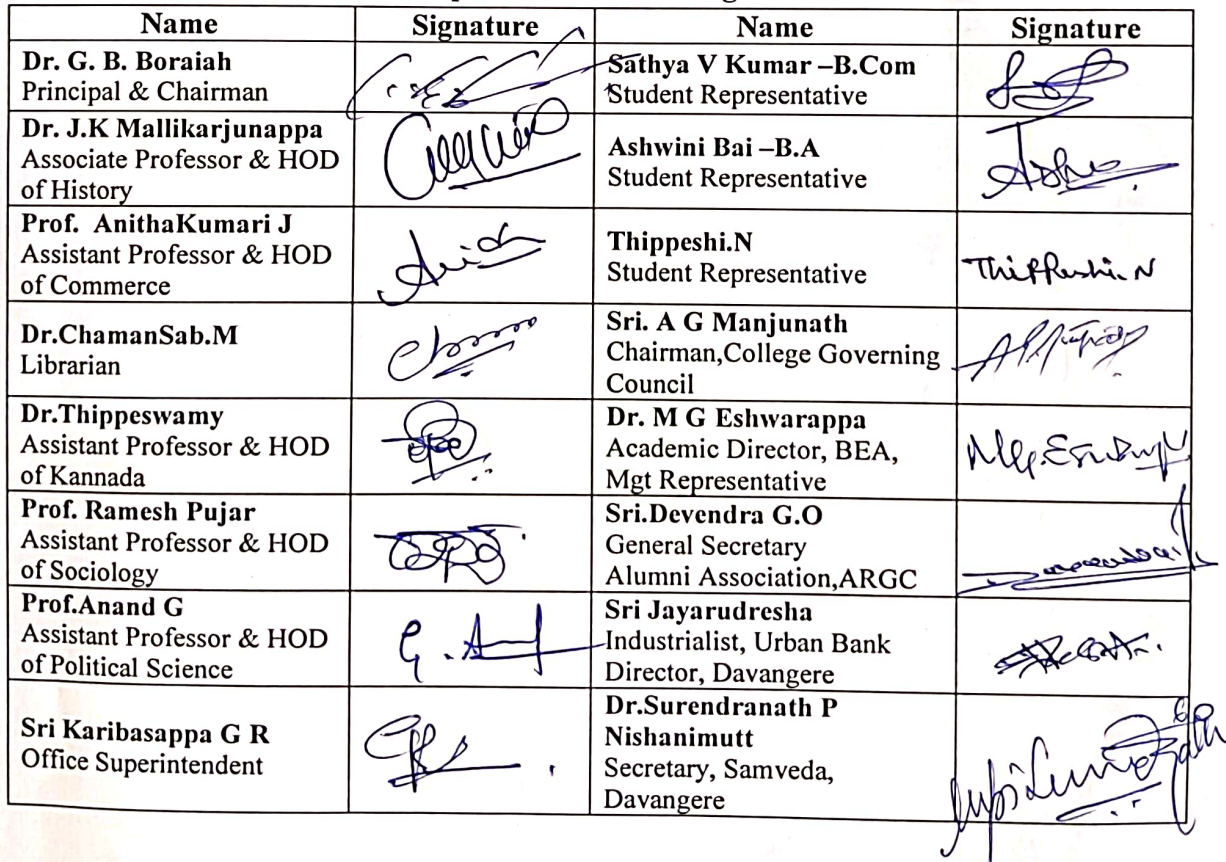 Name Signature Name Signature
Dr. G. B. Boraiah
Principal & Chairman
Sathya V Kumar –B.Com
Student Representative
Dr. J.K Mallikarjunappa
Associate Professor & HOD
of History
Ashwini Bai –B.A
Student Representative
Prof. AnithaKumari J
Assistant Professor & HOD
of Commerce
Thippeshi.N
Student Representative
Thippeshi.N
Dr.ChamanSab.M
Librarian
Sri. A G Manjunath
Chairman,College Governing
Council
Dr.Thippeswamy
Assistant Professor & HOD
of Kannada
Dr. M G Eshwarappa
Academic Director, BEA,
Mgt Representative
Prof. Ramesh Pujar
Assistant Professor & HOD
of Sociology
Sri.Devendra G.O
General Secretary
Alumni Association,ARGC
Prof.Anand G
Assistant Professor & HOD
of Political Science
Sri Jayarudresha
Industrialist, Urban Bank
Director, Davangere
Sri Karibasappa G R
Office Superintendent
Dr.Surendranath P
Nishanimutt
Secretary, Samveda,
Davangere